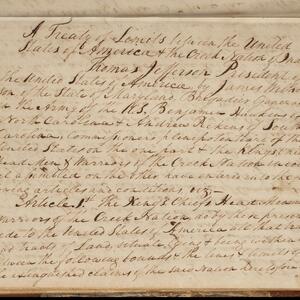 A Treaty of Limits between the United
States of America & the Creek Nation of
Thomas Jefferson President
the United States of America, by James
of the State of Brigadier General
in the Army of the U.S. Benjamin Hawkins
North Carolina & Andrew Pickens of South
Carolina, Commissioners
United States on the one part & the Kings
Head Men & Warriors of the Creek Nation
on the other have entered into the
following articles and conditions, viz.
Article 1st The Kings Chiefs Head Men
Warriors of the Creek Nation
cede to the United States of America all that
Tract of Land, situate, lying & being within &
between the following bounds & the lines & limits of
the extinguished claims of the said Nation heretofore